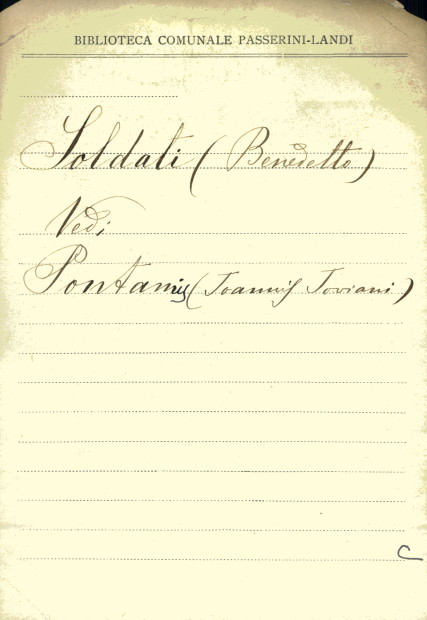 BIBLIOTECA COMUNALE PASSERINI-LANDI
Soldati (Benedetto)
Vedi
Pontanus (Joannis Joviani)
C